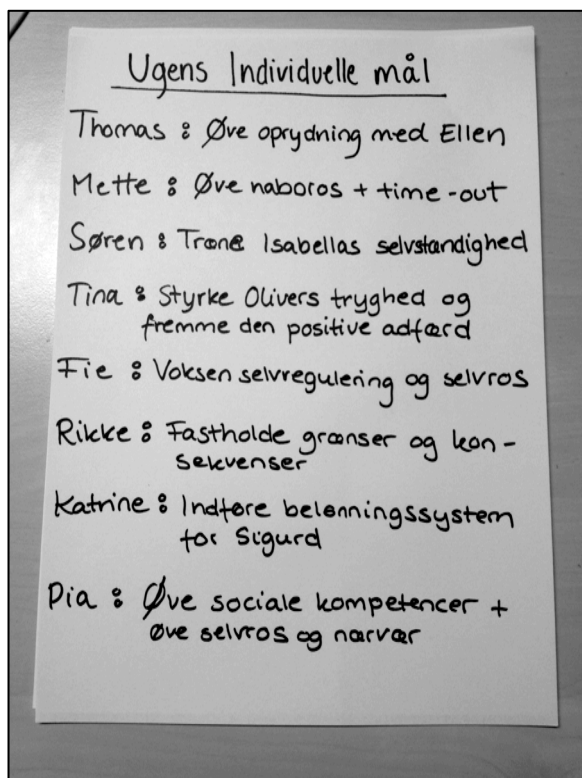 Ugens Individuelle mål
Thomas : Øve oprydning med Ellen
Mette : Øve naboros + time-out
Søren : Træne Isabellas selvstændighed
Tina : Styrke Olivers tryghed og
fremme den positive adfærd
Fie : Voksen selvregulering og selvros
Rikke : Fastholde grænser og kon-
sekvenser
Katrine : Indføre belønningssystem
for Sigurd
Pia : Øve sociale kompetencer +
øve selvros og nærvær